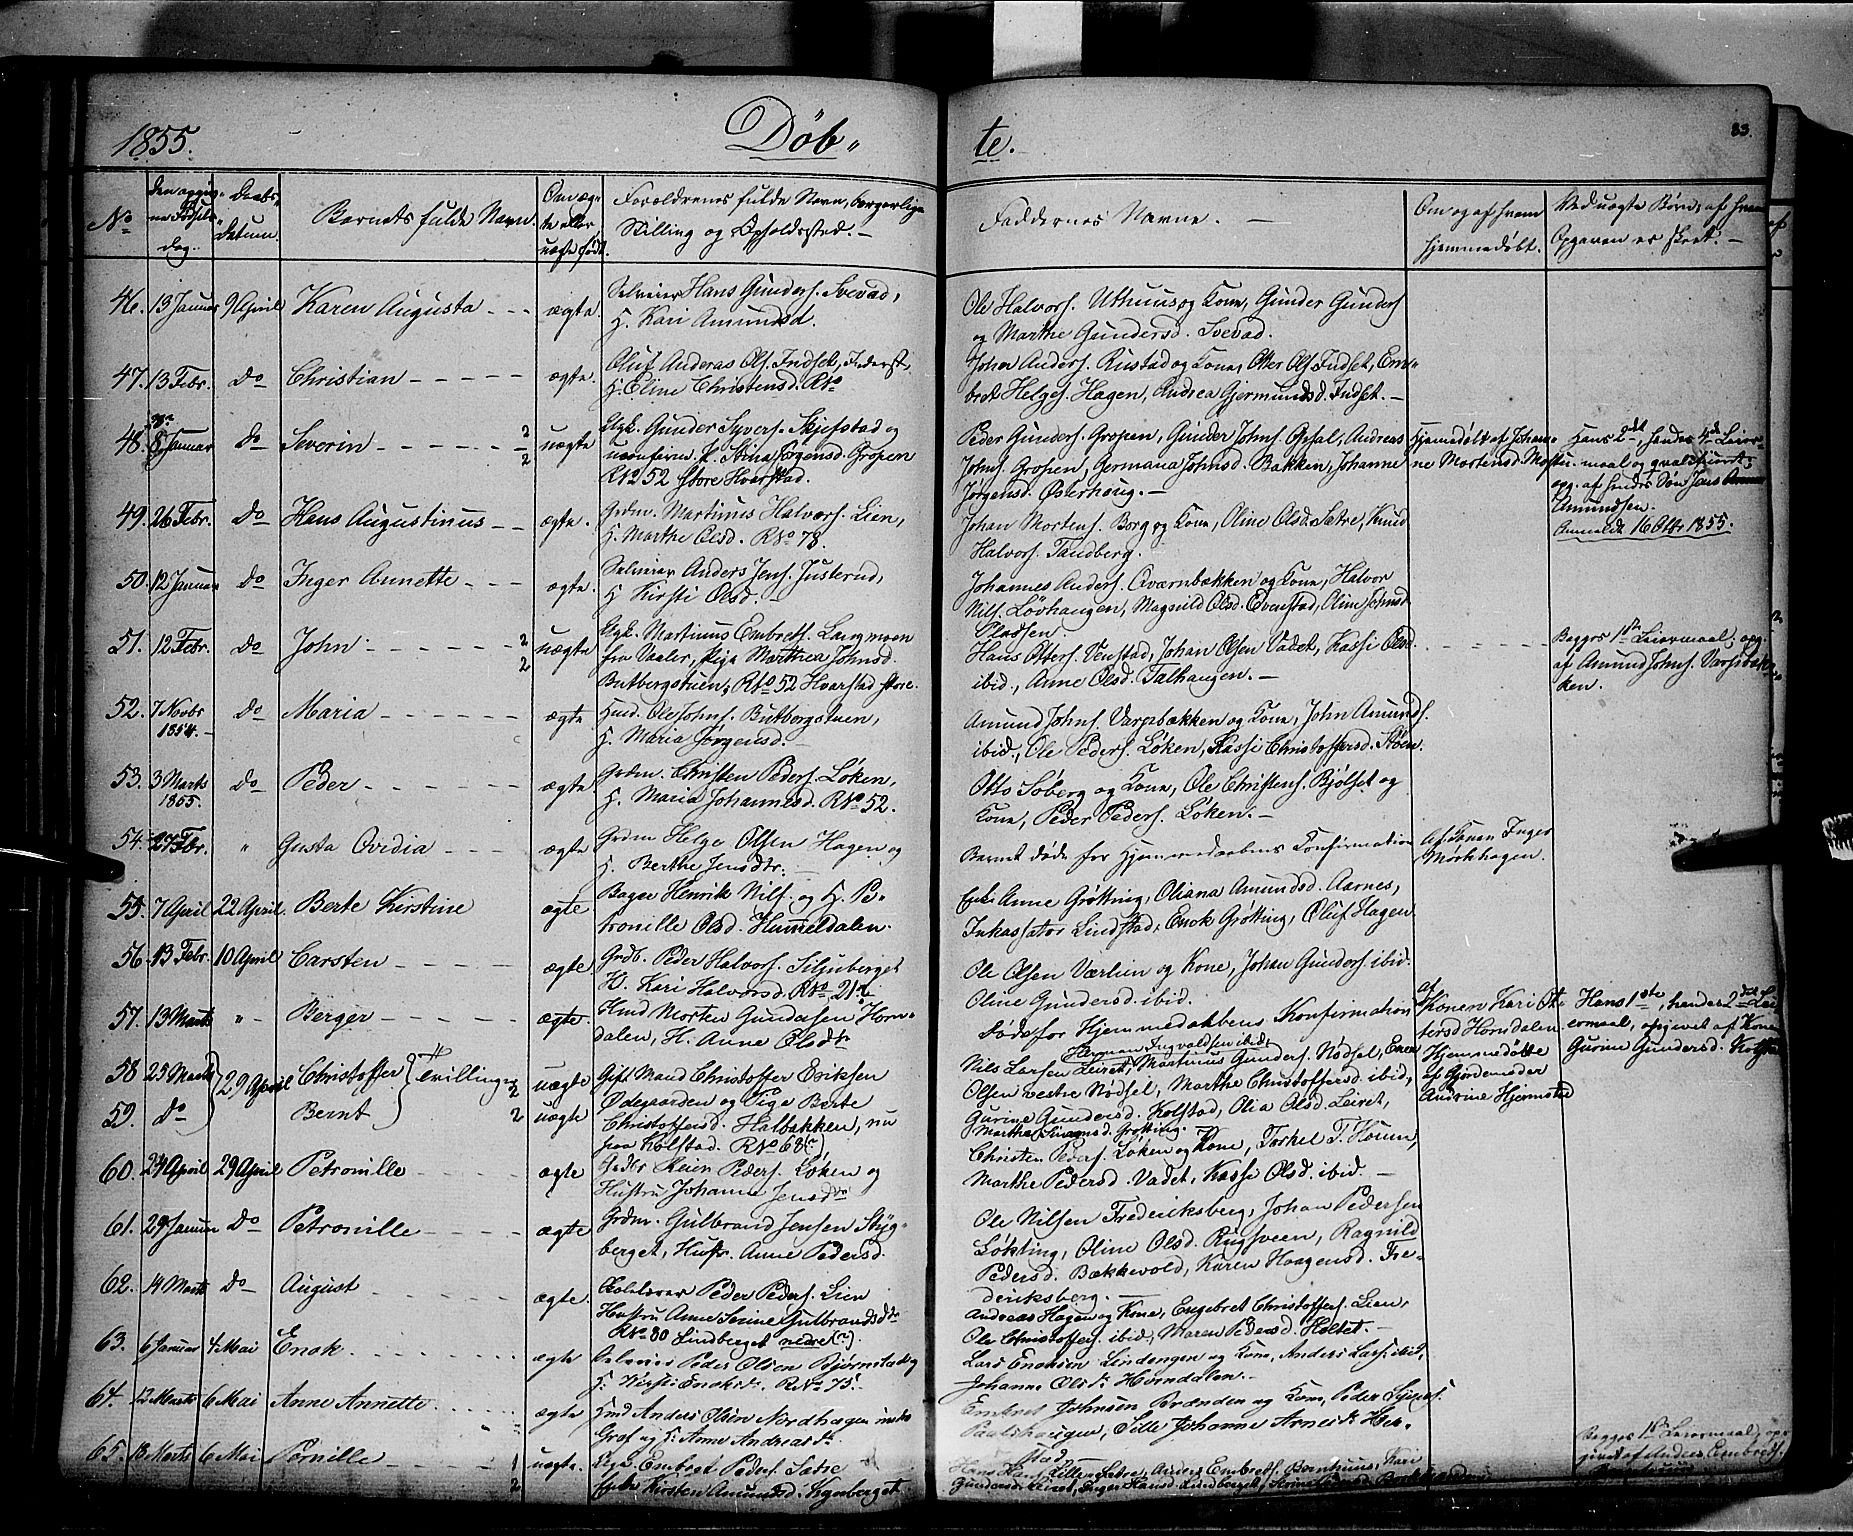 1855. Døb- te. 83.
No
Den opgiv-
ne Fødsels
dag.
Daabs-
datum
Barnets fulde Navn.
Om æg-
te eller
uægte født.
Forældrenes fulde Navn, borgerlige
Stilling og Opholdssted.
Faddernes Navne.
Om og af hvem
hjemmedøbt.
Ved uægte Børn, af hvem
Opgaven er skeet.
46. 13 Januar 9 April Karen Augusta ægte.
Selveier Hans Gunders. Svevad,
H. Kari Amundsd.
Ole Halvors. Uthuus og Kone, Gunder Gunders
og Marthe Gundersd. Svevad.
47. 13 Febr. Do Christian ægte.
Oluf Andreas Ols. Indset, Inderst,
H. Eline Christensd. No
John Anders. Rustad og Kone, Otter Ols. Indset, Em-
bret Helges. Hagen, Andrea Gjermundsd. Indset.
48. 8 Januar Do Severin 2 2 uægte
Ugk. Gunder Syvers. Skjefstad og
Stina Jørgensd. Gropen
No 252 Store Hvarstad.
Peder Gunders. Gropen, Gunder Johns. Opsal, Andreas
Johns. Gropen, Germana Johnsd. Bakken, Johanne
Jørgensd. Østerhaug.
Hjemmedøbt af Johan-
ne Mortensd.
Hans 2det, hendes 4de Leier-
maal og
opg. af hendes Søn Jens
Amundsen.
Anmeldt 16 Oktbr 1855.
49. 26 Febr. Do Hans Augustinus ægte.
Grdm. Martinus Halvors. Lien,
H. Marthe Olsd. R No 78.
Johan Mortens. Borg og Kone, Oline Olsd. Sætre, Knud
Halvors. Tandberg.
50. 12 Januar Do Inger Annette ægte.
Selveier Anders Jens. Justerud,
H Kirsti Olsd.
Johannes Anders. Qværnbækken og Kone, Halvor
Nils. Løvhaugen, Magnild Olsd. Evenstad, Oline Johnsd
Pladsen.
51. 12 Febr. Do John 2 2 uægte
Ugk. Martinus Embrets. Langmoen
fra Vaaler, Pige Marthea Johnsd.
Butbergstuen, R No 52 Hvarstad store.
Hans Otters. Venstad, Johan Olsen Vadet, Kassi Olsd.
ibid., Anne Olsd. Talhaugen.
Begges 1ste Leiermaal, opg.
af Amund Johns. Vargsbæk-
ken.
52. 7 Novbr 1854. Do Maria ægte
Husd. Ole Johns. Butbergstuen,
H. Maria Jørgensd.
Amund Johns. Vargsbækken og Kone, John Amunds.
ibid., Ole Peders. Løken, Kassi Christoffersd. Støen.
53. 3 Marts 1855. Do Peder ægte.
Grdm. Christen Peders. Løken,
H. Maria Johannesd. R No 52.
Otto Søberg og Kone, Ole Christens. Bjølset og
Kone, Peder Peders. Løken.
54. 27 Febr. " Gusta Ovidia ægte
Grdm Helge Olsen Hagen og
H. Berthe Jensdtr.
Barnet døde før Hjemmedaabens Confirmation
Af Konen Inger
Mørkhagen.
55. 7 April 22 April. Berte Kirstine ægte
Bager Henrik Nils. og H. Pe-
tronille Olsd. Hummeldalen.
Enke Anne Grøtting, Oliana Amundsd. Aarnes,
Inkassator Lindstad, Enok Grøtting, Oluf Hagen
56. 13 Febr. 10 April Carsten ægte
Grdb. Peder Halvors. Siljuberget
H. Kari Halvorsd. R No 212
Ole Olsen Værlien og Kone, Johan Gunders. ibid.
Oline Gundersd. ibid.
57. 13 Marts " Berger ægte
Husd Morten Gundersen Horn-
dalen, H. Anne Olsdtr
Døde før Hjemmedaabens Konfirmation
af Konen Kari Ot-
tersd Horndalen.
58 25 Marts 29 April Christoffer Tvillinger 2 uægte
59. Do Bernt 2 uægte
Gift Mand Christoffer Eriksen
Ødegaarden og Pige Berte
Christoffersd. Halbakken, nu
paa Kolstad. R No 68
Herman Ingvaldsen ibid,
Nils Larsen Leiret, Martinus Gunders. Nødsel, Even
Olsen vestre Nødsel, Marthe Christoffersd. ibid,
Gurine Gundersd. Kolstad, Olia Olsd. Leiret,
Martha Simensd. Grøtting.
Hjemmedøbte
af Gjordemoder
Andrine Hjermstad
Hans 1ste, hendes 2det Lei-
ermaal, opgivet af Kone
Gurine Gundersd. Kolstad
60. 24 April 29 April Petronille ægte
Grdbr Reier Peders. Løken og
Hustru Johanne Jensdtr
Christen Peders. Løken og Kone, Torkel T. Koien,
Marthe Pedersd. Vadet, Kassi Olsd. ibid.
61. 29 Januar Do Petronille ægte
Grdm. Gulbrand Jensen Skyg-
berget, Hustr. Anne Pedersd.
Ole Nilsen Frederiksberg, Johan Pedersen
Løkting, Oline Olsd. Rugsveen, Ragnild
Pedersd. Bækkevold, Karen Haagensd. Fre-
deriksberg.
62. 14 Marts Do August ægte.
Peder Peders. Lien
Hustru Anne Serine Gulbrandsdtr
R No 80 Lindberget nedre (?).
Andreas Hagen og Kone, Engebret Christoffers. Lien,
Ole Christoffers. ibid, Maren Pedersd. Holtet.
63. 6 Januar 4 Mai Enok. ægte
Selveier Peder Olsen Bjørnstad og
H. Kirsti Enoksdr. R No 75.
Lars Enoksen Lindengen og Kone, Anders Lars. ibid,
Johanne Olsdr Horndalen.
64. 12 Marts 6 Mai Anne Annette ægte
Husd Anders Olsen Nordhagen under
Graf og H. Anne Andreasdr
Embret Johnsen Brænden og Kone, Peder
Paalshaugen, Sille Johanne Arnesdr Hek-
stad
65. 18 Marts 6 Mai Pernille 1 2 uægte.
Ugk. Embret Peders. Sætre
Enke Kirsten Amundsd. Lynberget
Hans Hans. Lille Sætre, Anders Embrets. Bornhuus, Kari
Gundersd. Leiret, Inger Hansd. Lindberget,
Begges 1ste Leiermaal, op-
givet af Anders Embrets.